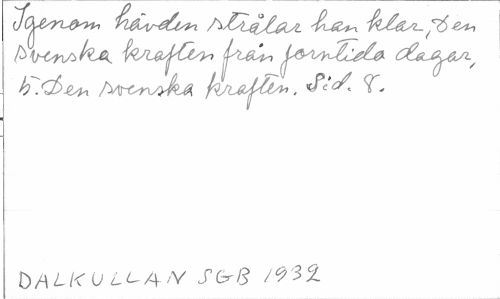 Igenom hävden strålar han klar, Den
svenska kraften från forntida dagar,
5. Den svenska kraften. Sid. 8.
DALKULLAN SGB 1932